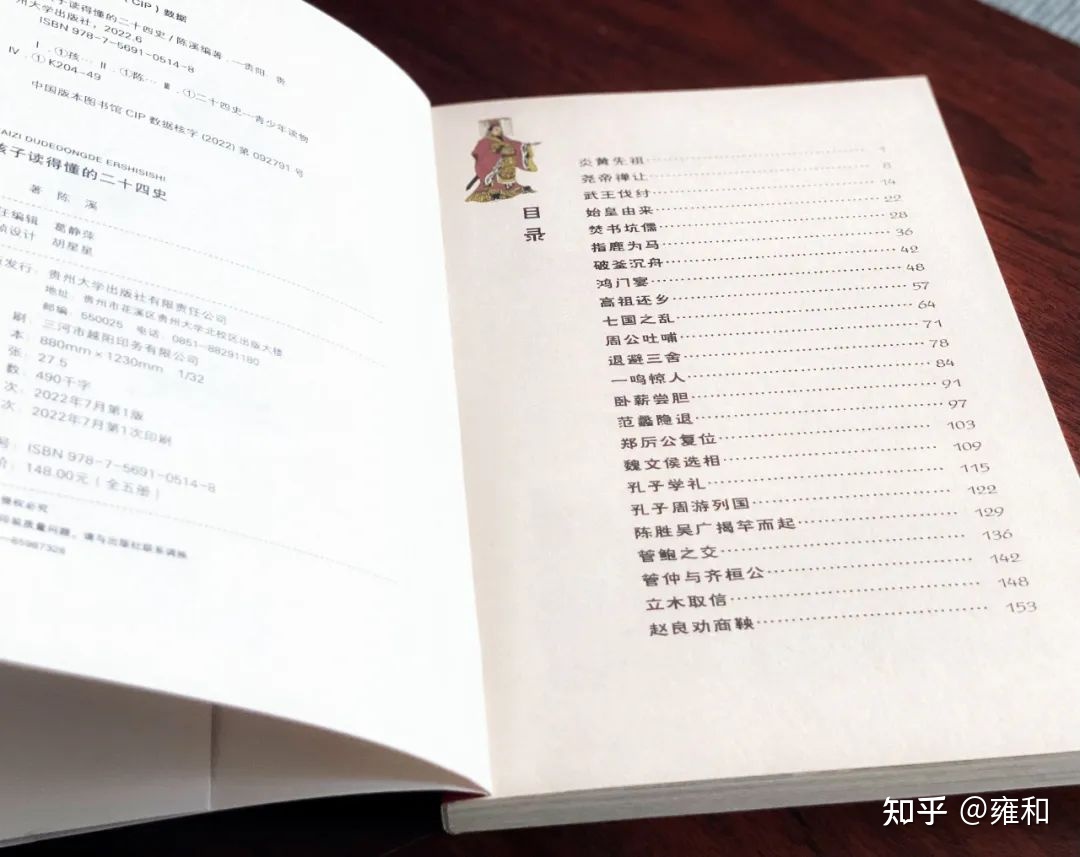 (CIP) 数据
孩子读得懂的二十四史 / 陈溪编著. —贵阳: 贵
州大学出版社, 2022.6
ISBN 978-7-5691-0514-8
Ⅰ. ①孩… Ⅱ. ①陈… Ⅲ. ①二十四史—青少年读物
Ⅳ. ①K204-49
中国版本图书馆 CIP 数据核字 (2022) 第 092791 号
AIZI DUDEDONGDE ERSHISISHI
孩子读得懂的二十四史
著 陈 溪
任编辑 葛静萍
帧设计 胡星星
发行: 贵州大学出版社有限责任公司
地址: 贵州市花溪区贵州大学北校区出版大楼
邮编: 550025 电话: 0851-88291180
刷: 三河市越阳印务有限公司
本: 880mm×1230mm 1/32
张: 27.5
数: 490千字
次: 2022年7月第1版
次: 2022年7月第1次印刷
号: ISBN 978-7-5691-0514-8
价: 148.00元 (全五册)
侵权必究
印装质量问题, 请与出版社联系调换
—85987328
目录
炎黄先祖 1
尧帝禅让 8
武王伐纣 14
始皇由来 22
焚书坑儒 28
指鹿为马 36
破釜沉舟 42
鸿门宴 48
高祖还乡 57
七国之乱 64
周公吐哺 71
退避三舍 78
一鸣惊人 84
卧薪尝胆 91
范蠡隐退 97
郑厉公复位 103
魏文侯选相 109
孔子学礼 115
孔子周游列国 122
陈胜吴广揭竿而起 129
管鲍之交 136
管仲与齐桓公 142
立木取信 148
赵良劝商鞅 153
知乎 @雍和